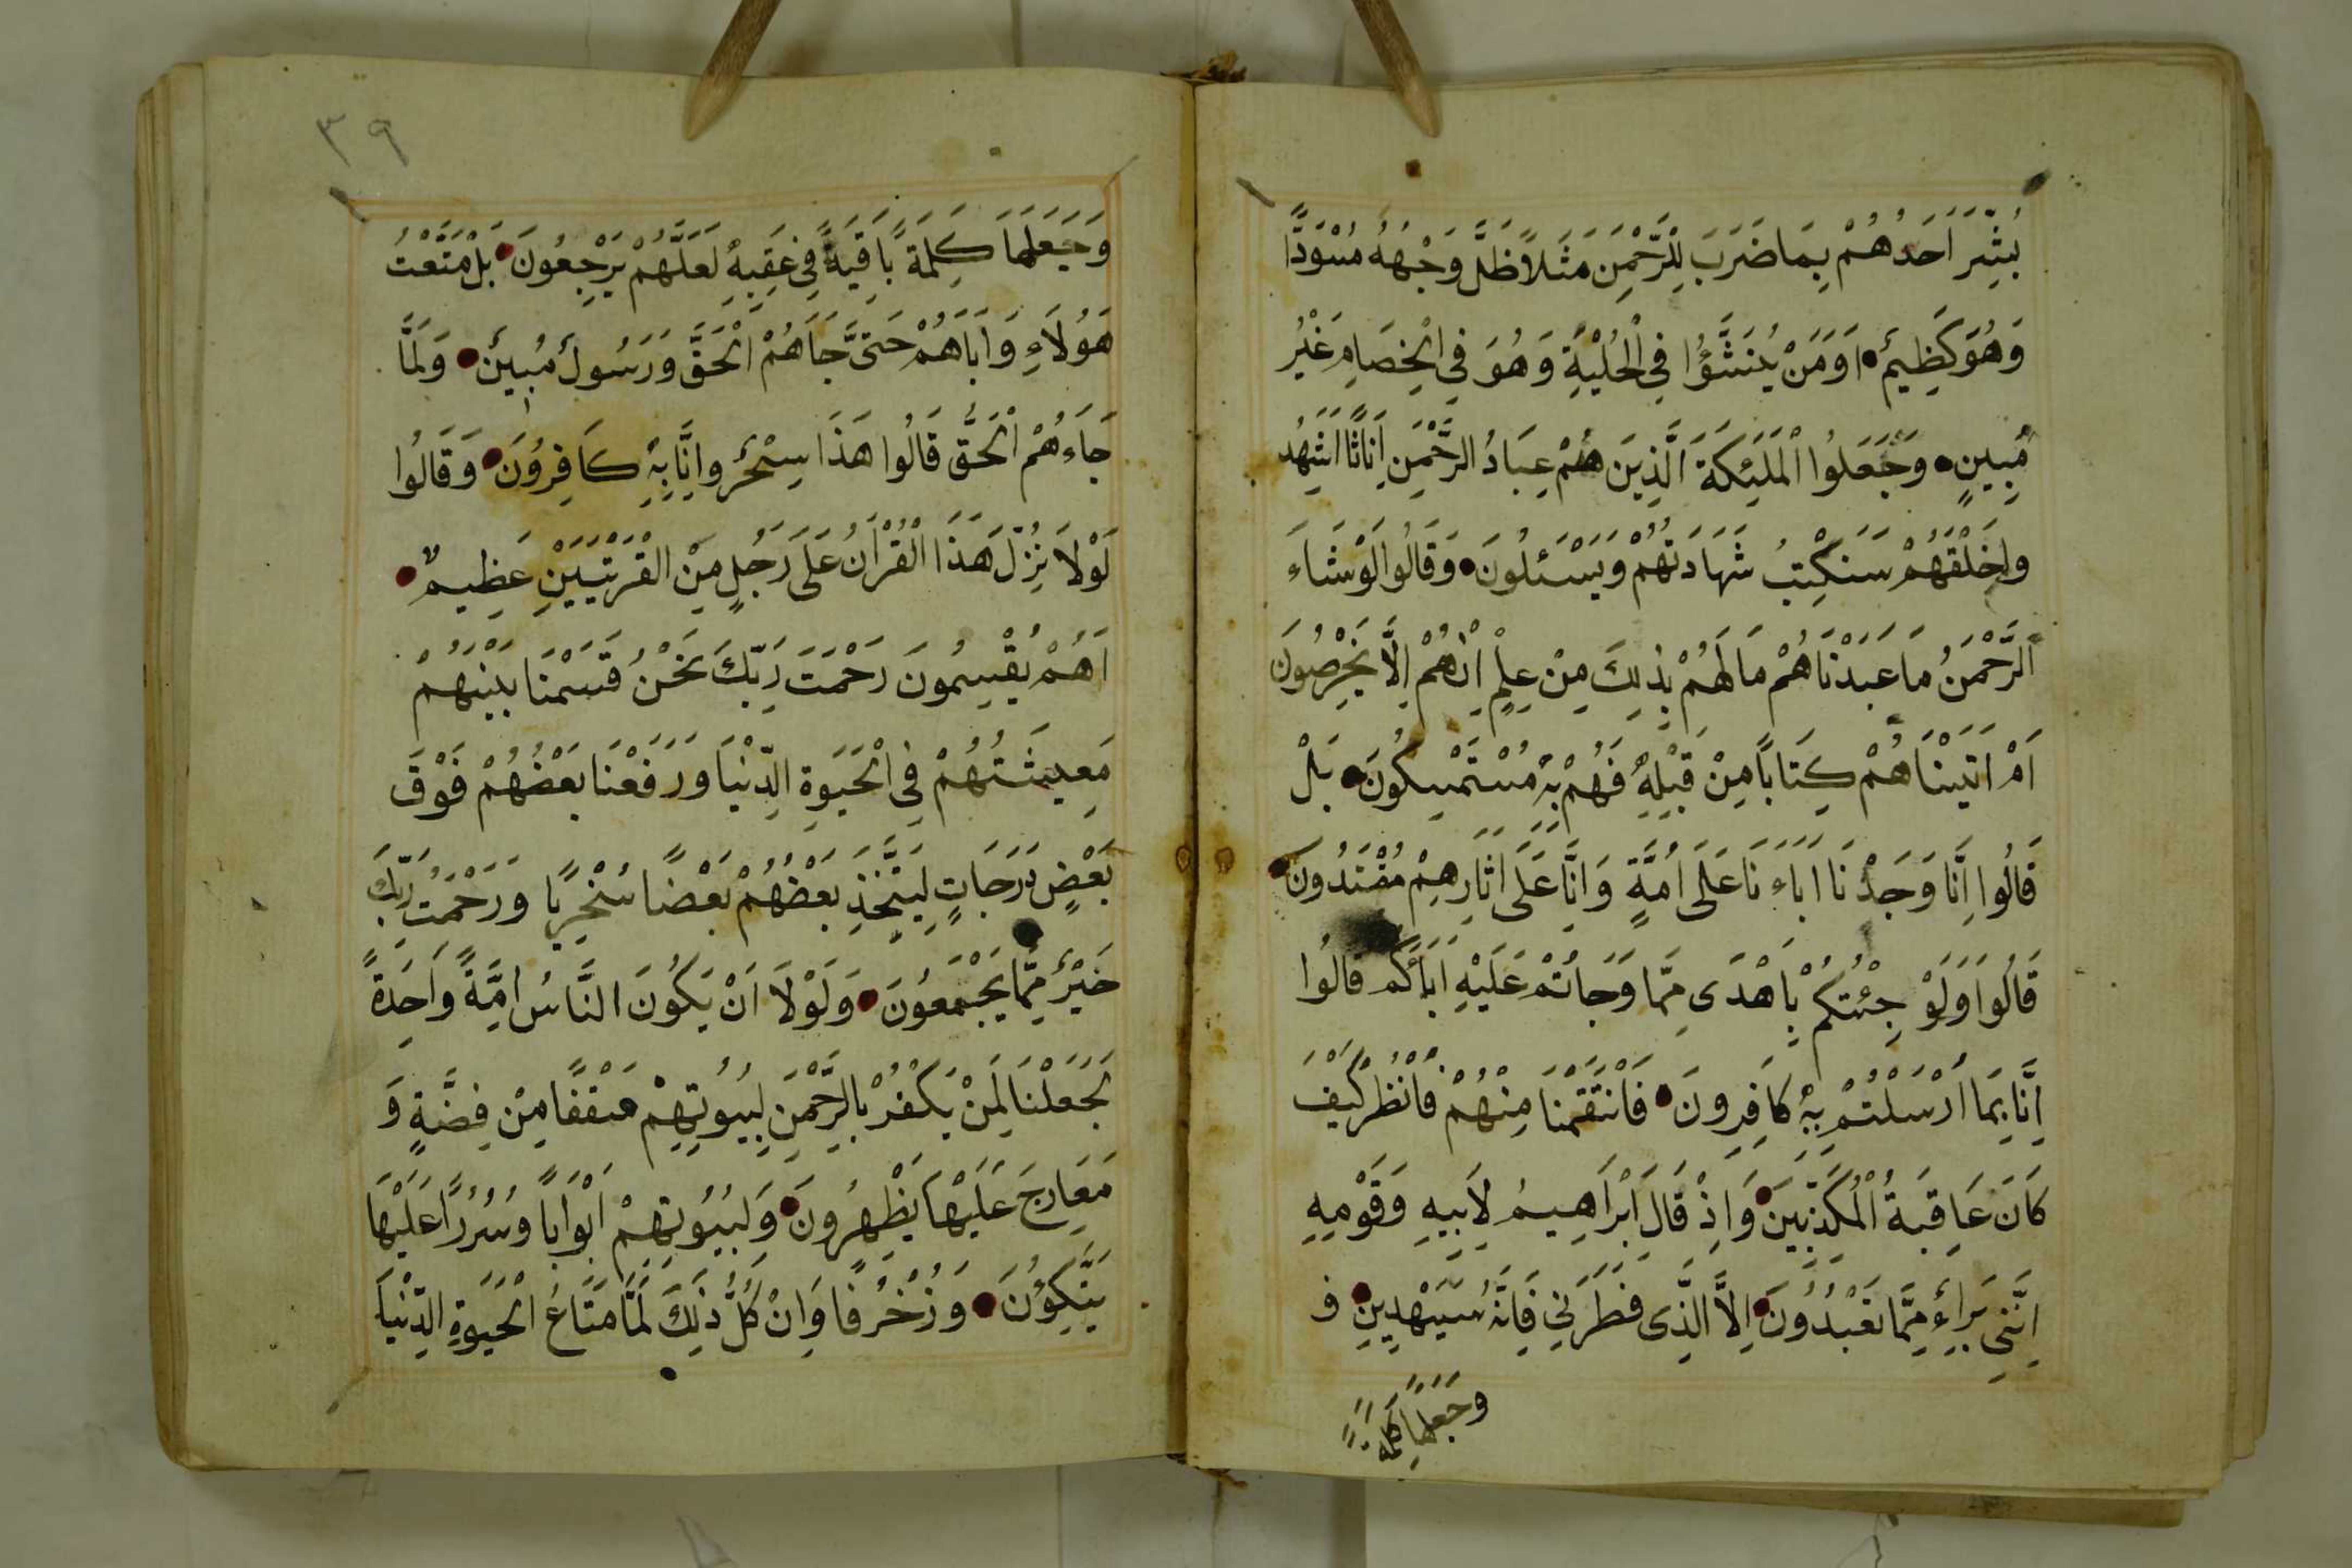 بُشِّرَ اَحَدُهُمْ بِمَا ضَرَبَ لِلرَّحْمٰنِ مَثَلًا ظَلَّ وَجْهُهُ مُسْوَدًّا
وَهُوَ كَظِيمٌ اَوَمَنْ يُنَشَّؤُا فِى الْحُلْيَةِ وَهُوَ فِى الْخِصَامِ غَيْرُ
مُبِينٍ وَجَعَلُوا الْمَلٰئِكَةَ الَّذِينَ هُمْ عِبَادُ الرَّحْمٰنِ اِنَاثًا اَشَهِدُ
واخَلْقَهُمْ سَنَكْتِبُ شَهَادَتَهُمْ وَيَسْئَلُونَ وَقَالُوا لَوْشَاءَ
الرَّحْمٰنُ مَا عَبَدْنَاهُمْ مَالَهُمْ بِذٰلِكَ مِنْ عِلْمٍ اِنْ هُمْ اِلَّا يَخْرُصُونَ
اَمْ اٰتَيْنَاهُمْ كِتَابًا مِنْ قَبْلِهِ فَهُمْ بِهِ مُسْتَمْسِكُونَ بَلْ
قَالُوا اِنَّا وَجَدْنَا اٰبَاءَنَا عَلَى اُمَّةٍ وَاِنَّا عَلَى اٰثَارِهِمْ مُقْتَدُونَ
قَالُوا اَوَلَوْ جِئْتُكُمْ بِاَهْدَى مِمَّا وَجَاتُمْ عَلَيْهِ اٰبَائَكُمْ قَالُوا
اِنَّا بِمَا اُرْسَلْتُمْ بِهِ كَافِرِونَ فَانْتَقَمْنَا مِنْهُمْ فَانْظُرْ كَيْفَ
كَانَ عَاقِبَةُ الْمُكَذِّبِينَ وَاِذْ قَالَ اِبْرَاهِيمُ لِاَبِيهِ وَقَوْمِهِ
اِنَّنِى بَرَاءٌ مِمَّا تَعْبُدُونَ اِلَّا الَّذِى فَطَرَنِى فَاِنَّهُ سَيَهْدِينِ وَ
وَجَعَلَهَا كَلِمَةً
٣٩
وَجَعَلَهَا كَلِمَةً بَاقِيَةً فِى عَقِبِهِ لَعَلَّهُمْ يَرْجِعُونَ بَلْ مَتَّعْتُ
هٰؤُلَاءِ وَاٰبَاَهُمْ حَتَّى جَاَهُمْ الْحَقَّ وَرَسُولٌ مُبِينٌ وَلَمَّا
جَاءَهُمْ الْحَقُّ قَالُوا هَذَا سِحْرٌ وَاِنَّا بِهِ كَافِرُونَ وَقَالُوا
لَوْلَا نُزِّلَ هَذَا الْقُرْاٰنُ عَلَى رَجُلٍ مِنَ الْقَرْيَتَيْنِ عَظِيمٌ
اَهُمْ يُقْسِمُونَ رَحْمَتَ رَبِّكَ نَحْنُ قَسَمْنَا بَيْنَهُمْ
مَعِيشَتُهُمْ فِى الْحَيَوةِ الدُّنْيَا وَرَفَعْنَا بَعْضُهُمْ فَوْقَ
بَعْضٍ دَرَجَاتٍ لِيَتَّخِذَ بَعْضُهُمْ بَعْضًا سُخْرِيًّا وَرَحْمَتُ رَبِّكَ
خَيْرٌ مِمَّا يَجْمَعُونَ وَلَوْلَا اَنْ يَكُونَ النَّاسُ اُمَّةً وَاحِدَةً
لَجَعَلْنَا لِمَنْ يَكْفُرْ بِالرَّحْمٰنِ لِبِيُوتِهِمْ سَقْفًا مِنْ فِضَّةٍ وَ
مَعَارِجَ عَلَيْهَا يَظْهِرُونَ وَلِبُيُوتِهِمْ اَبْوَابًا وَسُرُرًا عَلَيْهَا
يَتَّكِؤُنَ وَزُخْرُفًا وَاِنْ كُلُّ ذَلِكَ لَمَّا مَتَاعُ الْحَيَوةِ الدُّنْيَا